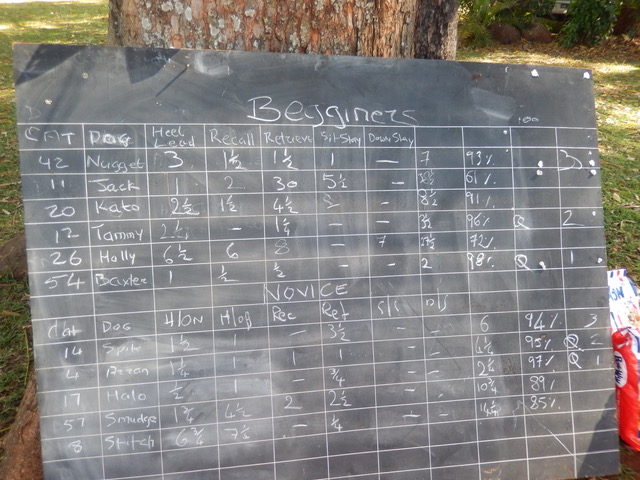 Begginers
CAT DOG Heel Lead Recall Retrieve Sit-Stay Down Stay
42 Nugget 3 1½ 1½ 1 — 7 93% 3
11 Jack 1 2 30 5½ - 61%
20 Kato 2½ 1½ 4½ - 8½ 91%
12 Tammy 2½ - 1¼ - - 96% Q 2
26 Holly 6½ 6 8 - 7 27½ 72%
54 Baxter 1 ½ ½ - - 2 98% Q 1
NOVICE
Cat DOG H/ON H/off Rec Ret S/S D/S
14 Spike 1½ 1 - 3½ - - 6 94% 3
4 1¼ 1 1 1 - - 4¼ 95% Q 2
17 Halo ½ 1 - ¾ - - 2¼ 97% Q 1
57 Smudge 1¾ 4½ 2 2½ - - 10¾ 89%
8 Stitch 6¾ 7½ - ¼ - - 14½ 85%